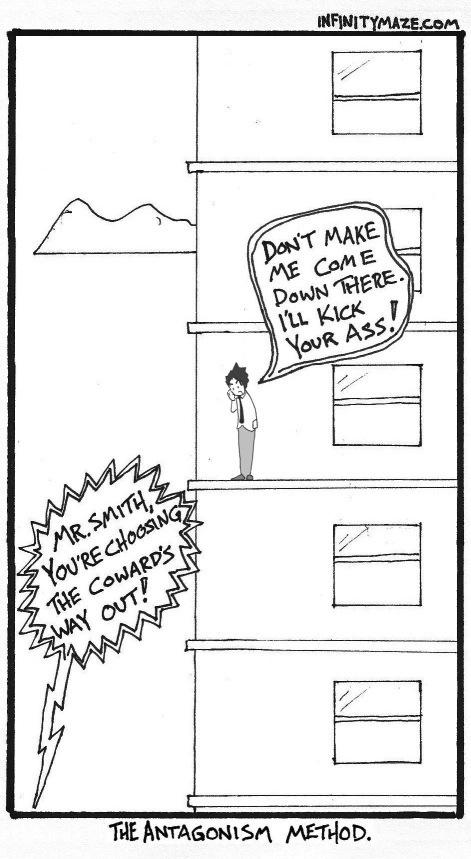 INFINITYMAZE.COM
DON'T MAKE
ME COME
DOWN THERE.
I'LL KICK
YOUR ASS!
MR. SMITH,
YOU'RE CHOOSING
THE COWARD'S
WAY OUT!
THE ANTAGONISM METHOD.